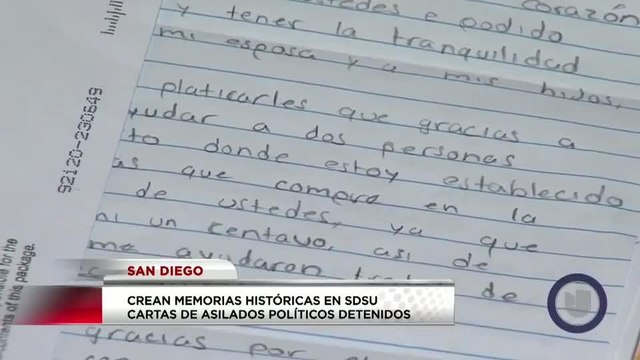 corazón
ustedes e podido
y tener la tranquilidad
mi esposa y a mis hijos,
platicarles que gracias a
yudar a dos personas
to donde estoy establecido
as que compre en la
de ustedes, ya que
ni un centavo, asi de
me ayudaron
de
gracias por
92120-230649
of this package.
SAN DIEGO
CREAN MEMORIAS HISTÓRICAS EN SDSU
CARTAS DE ASILADOS POLÍTICOS DETENIDOS